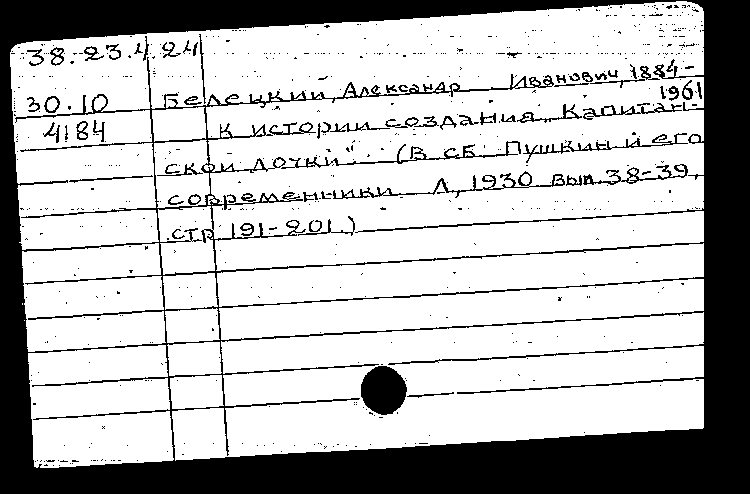 38.23.4.24
30.10 Белецкий, Александр Иванович, 1884-
1961
4184 К истории создания „Капитан-
ской дочки". (В сб. Пушкин и его
современники Л, 1930 вып. 38-39,
стр 191-201.)